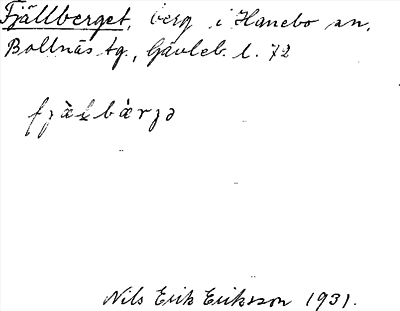 Fjällberget, berg i Hanebo sn,
Bollnäs tg., Gävleb. l. 72
fjàlbàrjə
Nils Erik Eriksson 1931.